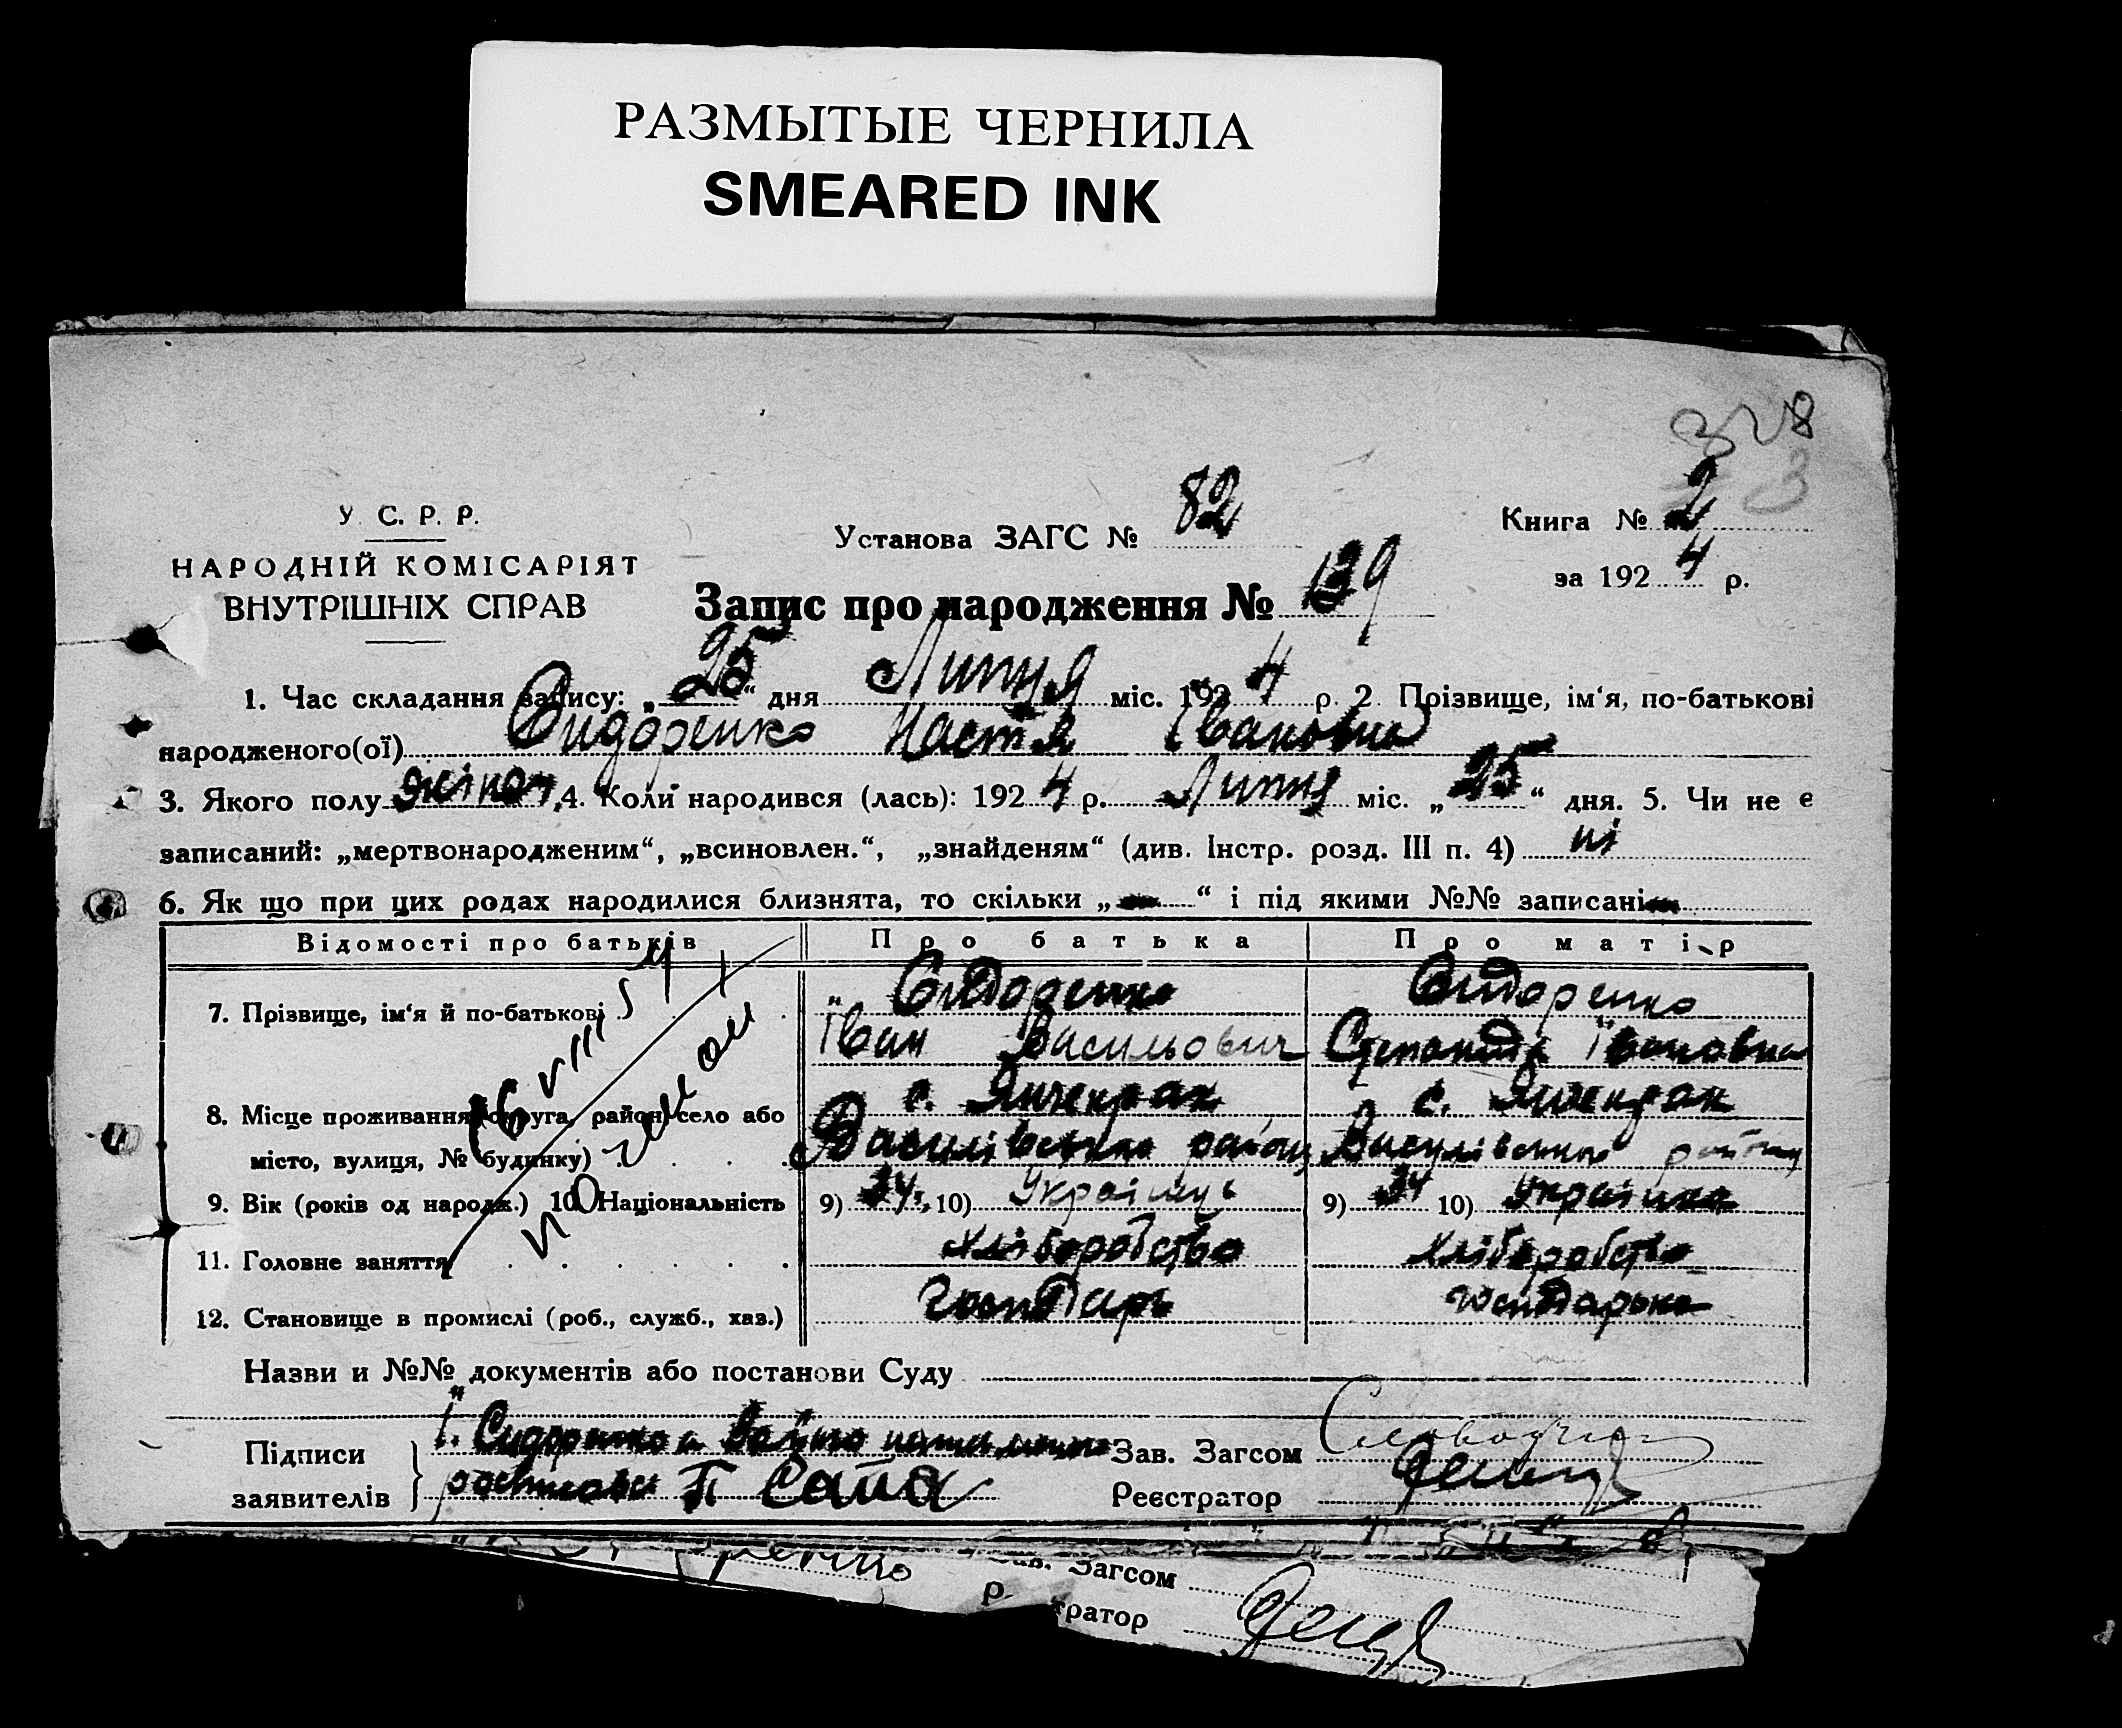 РАЗМЫТЫЕ ЧЕРНИЛА
SMEARED INK
328
3
У. С. Р. Р.
НАРОДНІЙ КОМІСАРІЯТ
ВНУТРІШНІХ СПРАВ
Установа ЗАГС № 82
Книга № 2
за 1924 р.
Запис про народження № 139
1. Час складання запису: „25“ дня Липня міс. 1924 р. 2. Прізвище, ім‘я, по-батькові
народженого(ої) Сидоренко Настя Івановна
3. Якого полу жіноч. 4. Коли народився (лась): 1924 р. Липня міс. „25“ дня. 5. Чи не є
записаний: „мертвонародженим“, „всиновлен.“, „знайденям“ (див. Інстр. розд. III п. 4) ні
6. Як що при цих родах народилися близнята, то скільки „ “ і під якими №№ записані
Відомості про батьків Про батька Про матір
7. Прізвище, ім‘я й по-батькові
Сидоренко
Іван Васильович
Сидоренко
Степанида Івановна
8. Місце проживання (округа, район, село або
місто, вулиця, № будинку)
с. Янчекрак
Василівського району
с. Янчекрак
Василівського району
9. Вік (років од народж.) 10. Національність 9) 34, 10) Українець 9) 34 10) Українка
11. Головне заняття Хліборобство Хліборобство
12. Становище в промислі (роб., служб., хаз.) Господарь господарька
16 VIII
Назви и №№ документів або постанови Суду
Підписи
заявителів
І. Сидоренко а
Зав. Загсом
Реєстратор
Зав. Загсом
р. тратор